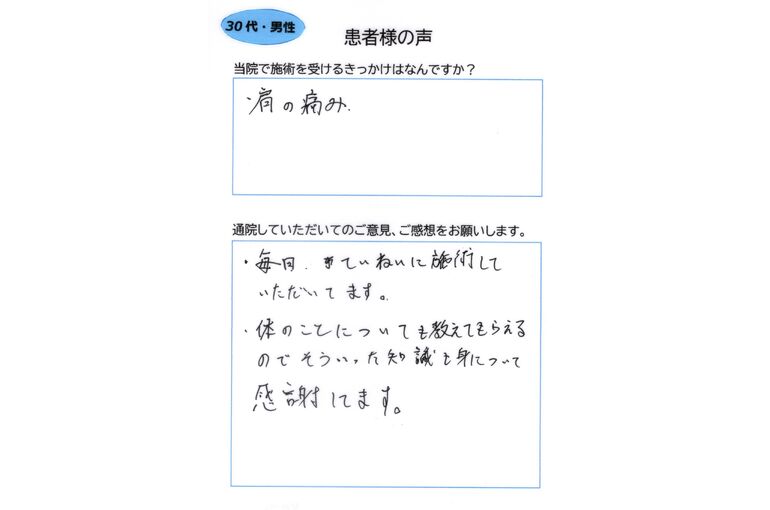 30代・男性
患者様の声
当院で施術を受けるきっかけはなんですか？
・肩の痛み.
通院していただいてのご意見、ご感想をお願いします。
・毎回、ていねいに施術して
いただいてます。
・体のことについても教えてもらえる
のでそういった知識も身について
感謝してます。